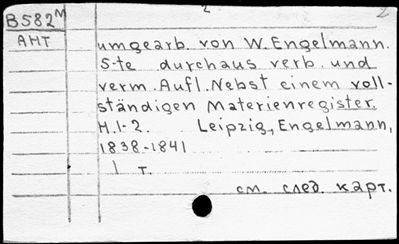 2 2
B582м
АНТ
umgearb. von W. Engelmann.
5-te durchaus verb. und
verm. Aufl. Nebst einem voll-
ständigen Materienregister.
H.1-2. Leipzig, Engelmann,
1838-1841
1 т.
см. след. карт.